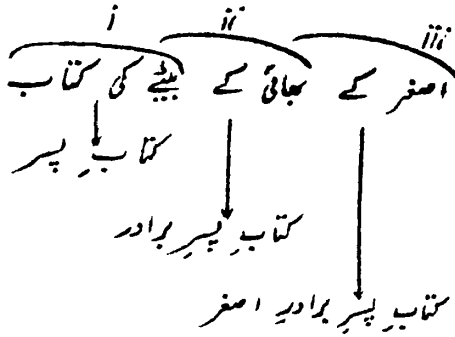 i ii iii
اصغر کے بھائی کے بیٹے کی کتاب
کتابِ پسر
کتابِ پسرِ برادر
کتابِ پسرِ برادرِ اصغر